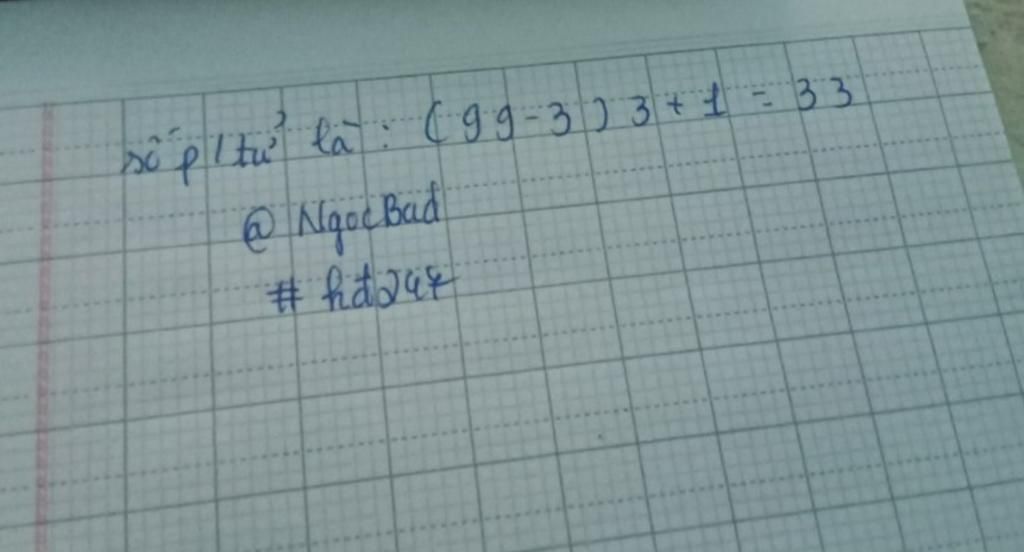 số p/tử là : (99-3) 3 + 1 = 33
@ NgocBad
# hđ247